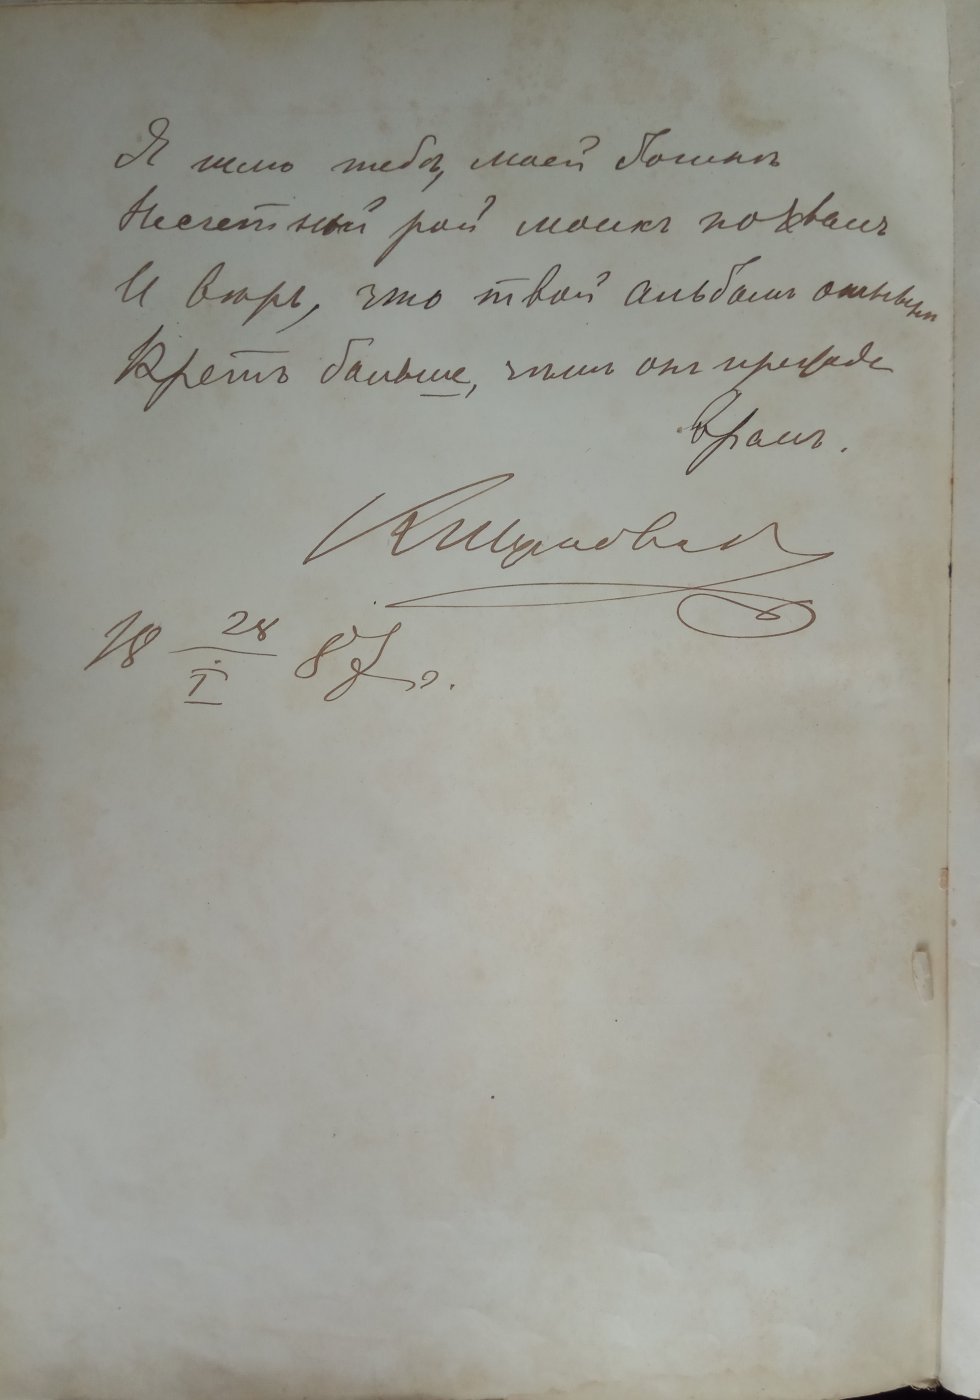 Я шлю тебѣ, моей богинѣ
Несчетный рой моихъ похвалъ
И вѣрь, что твой альбомъ отнынѣ
Вретъ больше, чѣмъ онъ прежде
вралъ.
18 28/I 87 г.